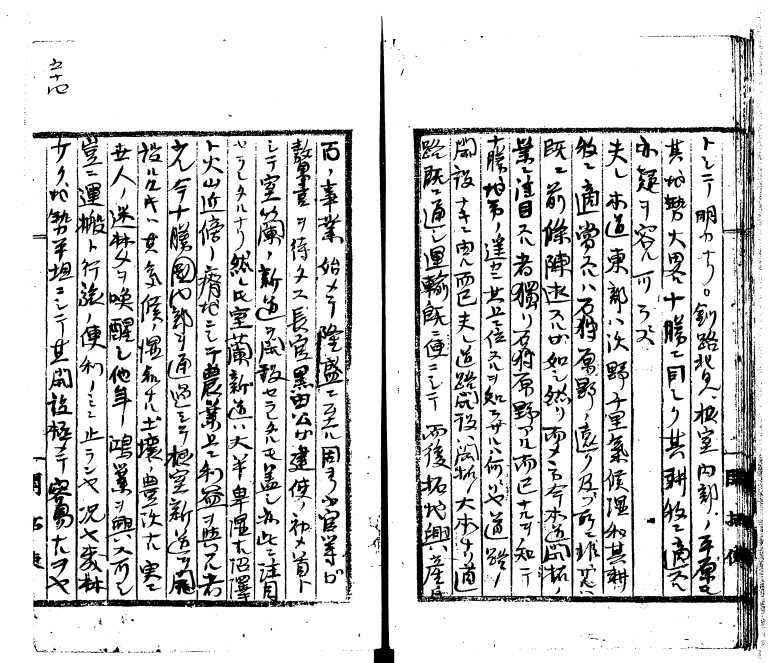 トシテ明カナリ。釧路北見、根室内部ノ平原モ
其地勢大畧十勝ニ同シク其耕牧ニ適スル
亦疑ヲ容ル可ラズ
夫レ本道東部ハ沃野千里氣候温和其耕
牧ニ適當スルハ石狩原野ノ遠ク及ブ所ニ非ザルハ
既ニ前條陳述スルガ如シ然リ而メ今本道開拓ノ
業ニ注目スル者獨リ石狩原野アル而已ナルヲ知テ
十勝地方ノ遥カ其上ニ位スルヲ知ラザルハ何ゾヤ道路ノ
開設ナキニ由ル而已夫レ道路開設ハ開拓ノ大本ナリ道
路既ニ通シ運輸既ニ便ニシテ而後拓地興ル産
百ノ事業始メテ隆盛ニ至ル固ヨリ官等ガ
贅言ヲ待タス長官黒田公ガ建使ノ初メ首ト
シテ室蘭ノ新道ヲ開設セラレタルモ蓋シ亦此ニ注目
セラレタルナリ然レ氏室蘭新道ハ大半卑湿ナル沼澤
ト火山近傍ノ瘠地ニシテ農業上ニ利益ヲ與フル者
少シ今十勝國内部ヲ通過シテ根室新道ヲ開
設スルキハ其氣候ノ温和ナル土壤ノ豊沃ナル實ニ
世人ノ迷林夕ヲ喚醒シ他年ノ鴻業ヲ興スヘシ
豈ニ運搬ト行旅ノ便利ノミニ止ランヤ況ヤ森林
少ク地勢平坦ニシテ其開設極テ容易ナルヲヤ
五十四
開拓使
開拓使